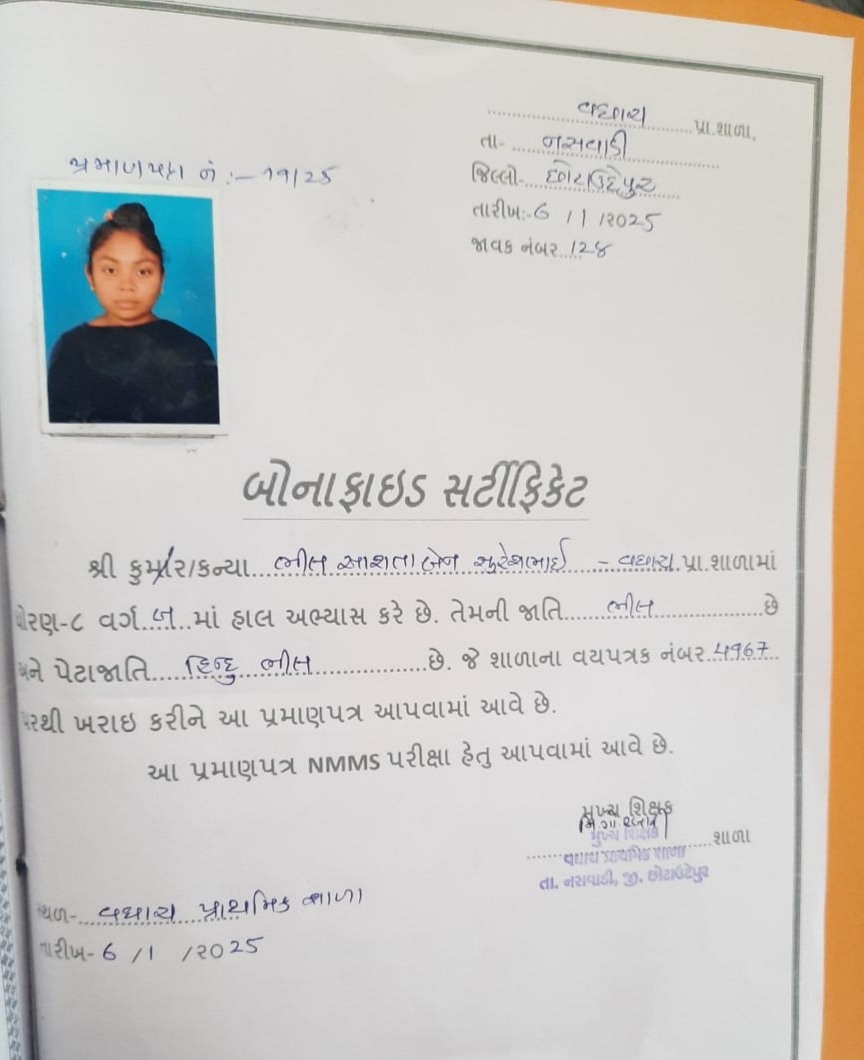 વઘાચ પ્રા.શાળા.
તા- નસવાડી
જિલ્લો- છોટાઉદેપુર
તારીખ:-6 / 1 /2025
જાવક નંબર 128
પ્રમાણપત્ર નં :- 19/25
બોનાફાઇડ સર્ટીફિકેટ
શ્રી કુમાર/કન્યા ભીલ આશતાબેન સુરેશભાઈ - વઘાચ પ્રા.શાળામાં
ધોરણ-૮ વર્ગ બ માં હાલ અભ્યાસ કરે છે. તેમની જાતિ ભીલ છે
અને પેટાજાતિ હિન્દુ ભીલ છે. જે શાળાના વયપત્રક નંબર 4967
પરથી ખરાઇ કરીને આ પ્રમાણપત્ર આપવામાં આવે છે.
આ પ્રમાણપત્ર NMMS પરીક્ષા હેતુ આપવામાં આવે છે.
મુખ્ય શિક્ષક
મુખ્ય શિક્ષક
શાળા
વઘાચ પ્રાથમિક શાળા
તા. નસવાડી, જી. છોટાઉદેપુર
સ્થળ- વઘાચ પ્રાથમિક શાળા
તારીખ- 6 / 1 /2025